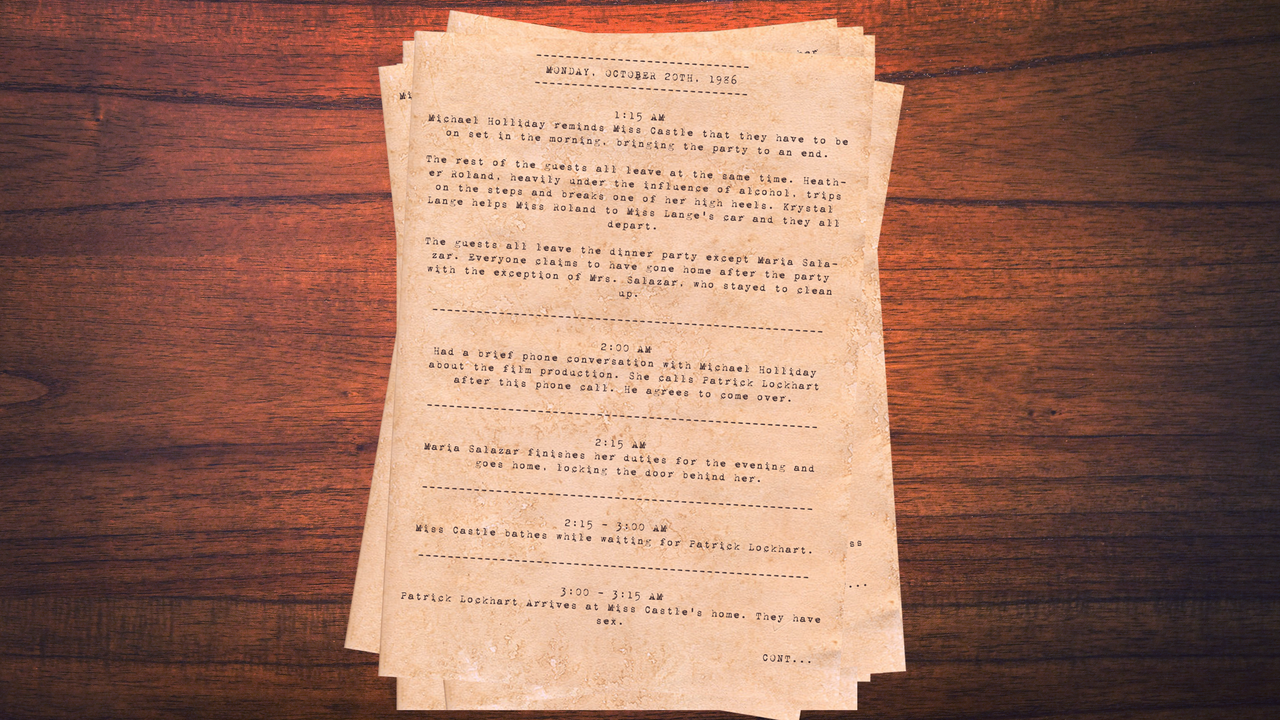 MONDAY, OCTOBER 20TH, 1986
1:15 AM
Michael Holliday reminds Miss Castle that they have to be
on set in the morning, bringing the party to an end.
The rest of the guests all leave at the same time. Heath-
er Roland, heavily under the influence of alcohol, trips
on the steps and breaks one of her high heels. Krystal
Lange helps Miss Roland to Miss Lange's car and they all
depart.
The guests all leave the dinner party except Maria Sala-
zar. Everyone claims to have gone home after the party
with the exception of Mrs. Salazar, who stayed to clean
up.
2:00 AM
Had a brief phone conversation with Michael Holliday
about the film production. She calls Patrick Lockhart
after this phone call. He agrees to come over.
2:15 AM
Maria Salazar finishes her duties for the evening and
goes home, locking the door behind her.
2:15 - 3:00 AM
Miss Castle bathes while waiting for Patrick Lockhart.
3:00 - 3:15 AM
Patrick Lockhart Arrives at Miss Castle's home. They have
sex.
CONT...